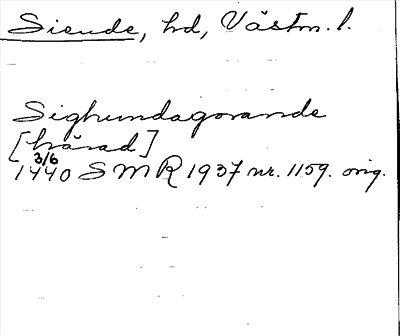 Siende, hd, Västm. l.
Sighundagorande
[härad]
3/6
1440 SMR 1937 nr. 1159. orig.